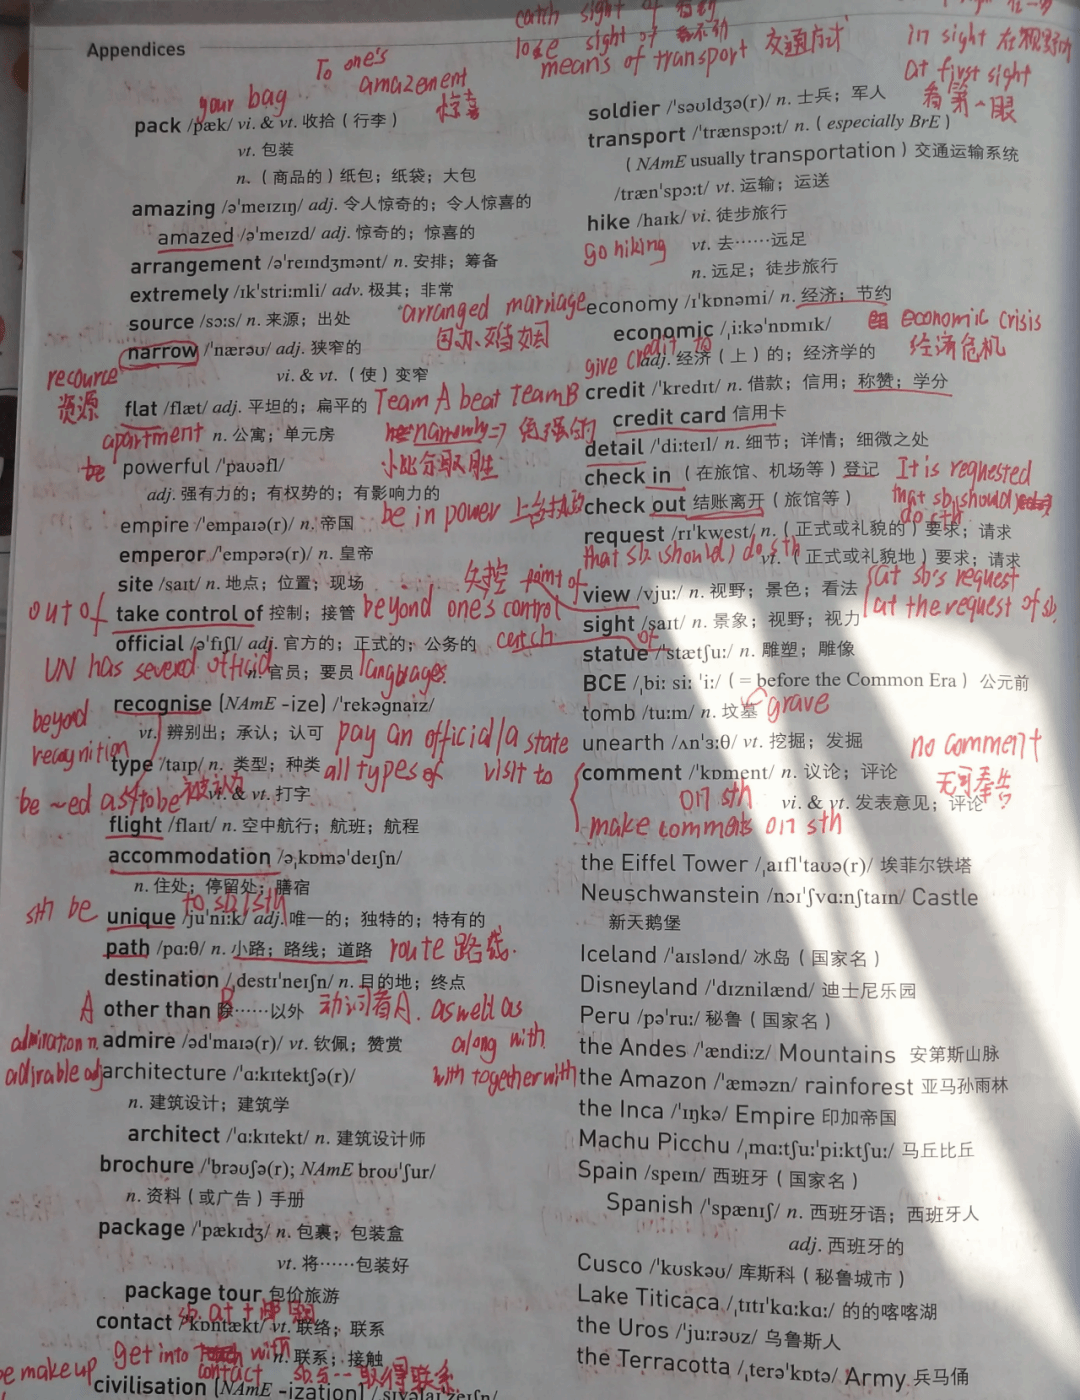 Appendices
catch sight of 看到
lose sight of 看不到
means of transport 交通方式
in sight 在视野内
at first sight
看第一眼
To one's
amazement
惊喜
your bag
pack /pæk/ vi. & vt. 收拾（行李）
vt. 包装
n.（商品的）纸包；纸袋；大包
amazing /ə'meɪzɪŋ/ adj. 令人惊奇的；令人惊喜的
amazed /ə'meɪzd/ adj. 惊奇的；惊喜的
arrangement /ə'reɪndʒmənt/ n. 安排；筹备
extremely /ɪk'stri:mli/ adv. 极其；非常
arranged marriage
source /sɔ:s/ n. 来源；出处
narrow /'nærəʊ/ adj. 狭窄的
vi. & vt.（使）变窄
resource
资源
flat /flæt/ adj. 平坦的；扁平的
Team A beat Team B
apartment n. 公寓；单元房
narrowly
小比分取胜
be powerful /'paʊəfl/
adj. 强有力的；有权势的；有影响力的
be in power 上台执政的
empire /'empaɪə(r)/ n. 帝国
emperor /'empərə(r)/ n. 皇帝
site /saɪt/ n. 地点；位置；现场
失控
out of take control of 控制；接管 beyond one's control
official /ə'fɪʃl/ adj. 官方的；正式的；公务的
n. 官员；要员
UN has several official languages.
recognise (NAmE -ize) /'rekəgnaɪz/
vt. 辨别出；承认；认可
beyond
recognition
pay an official / a state
visit to
type /taɪp/ n. 类型；种类 all types of
vi. & vt. 打字
be ~ed as/to be 被认为
flight /flaɪt/ n. 空中航行；航班；航程
accommodation /ə,kɒmə'deɪʃn/
n. 住处；停留处；膳宿
sth be unique /ju'ni:k/ adj. 唯一的；独特的；特有的
to sb/sth
path /pɑ:θ/ n. 小路；路线；道路 route 路线.
destination /,destɪ'neɪʃn/ n. 目的地；终点
A other than B 除……以外 动词看A. as well as
along with
together with
admiration n. admire /əd'maɪə(r)/ vt. 钦佩；赞赏
adjrable adj architecture /'ɑ:kɪtektʃə(r)/
n. 建筑设计；建筑学
architect /'ɑ:kɪtekt/ n. 建筑设计师
brochure /'brəʊʃə(r); NAmE broʊ'ʃur/
n. 资料（或广告）手册
package /'pækɪdʒ/ n. 包裹；包装盒
vt. 将……包装好
package tour 包价旅游
contact /'kɒntækt/ vt. 联络；联系
n. 联系；接触
get into contact with sb 与… 取得联系
make up
civilisation (NAmE -ization) /,sɪvəlaɪ'zeɪʃn/
soldier /'səʊldʒə(r)/ n. 士兵；军人
transport /'trænspɔ:t/ n.（especially BrE）
（NAmE usually transportation）交通运输系统
/træn'spɔ:t/ vt. 运输；运送
hike /haɪk/ vi. 徒步旅行
go hiking
vt. 去……远足
n. 远足；徒步旅行
economy /ɪ'kɒnəmi/ n. 经济；节约
economic /,i:kə'nɒmɪk/
economic crisis
经济危机
adj. 经济（上）的；经济学的
give credit to
credit /'kredɪt/ n. 借款；信用；称赞；学分
credit card 信用卡
detail /'di:teɪl/ n. 细节；详情；细微之处
check in（在旅馆、机场等）登记
check out 结账离开（旅馆等）
It is requested
that sb. should
do sth
request /rɪ'kwest/ n.（正式或礼貌的）要求；请求
vt.（正式或礼貌地）要求；请求
that sb. (should) do sth
at sb's request
at the request of sb.
point of view /vju:/ n. 视野；景色；看法
catch sight of /saɪt/ n. 景象；视野；视力
statue /'stætʃu:/ n. 雕塑；雕像
BCE /,bi: si: 'i:/（= before the Common Era）公元前
tomb /tu:m/ n. 坟墓 grave
unearth /ʌn'ɜ:θ/ vt. 挖掘；发掘
comment /'kɒment/ n. 议论；评论
no comment
无可奉告
vi. & vt. 发表意见；评论
on sth
make comments on sth
the Eiffel Tower /,aɪfl'taʊə(r)/ 埃菲尔铁塔
Neuschwanstein /nɔɪ'ʃvɑ:nʃtaɪn/ Castle
新天鹅堡
Iceland /'aɪslənd/ 冰岛（国家名）
Disneyland /'dɪznilænd/ 迪士尼乐园
Peru /pə'ru:/ 秘鲁（国家名）
the Andes /'ændi:z/ Mountains 安第斯山脉
the Amazon /'æməzn/ rainforest 亚马孙雨林
the Inca /'ɪŋkə/ Empire 印加帝国
Machu Picchu /,mɑ:tʃu:'pi:ktʃu:/ 马丘比丘
Spain /speɪn/ 西班牙（国家名）
Spanish /'spænɪʃ/ n. 西班牙语；西班牙人
adj. 西班牙的
Cusco /'kʊskəʊ/ 库斯科（秘鲁城市）
Lake Titicaca /,tɪtɪ'kɑ:kɑ:/ 的的喀喀湖
the Uros /'ju:rəʊz/ 乌鲁斯人
the Terracotta /,terə'kɒtə/ Army 兵马俑